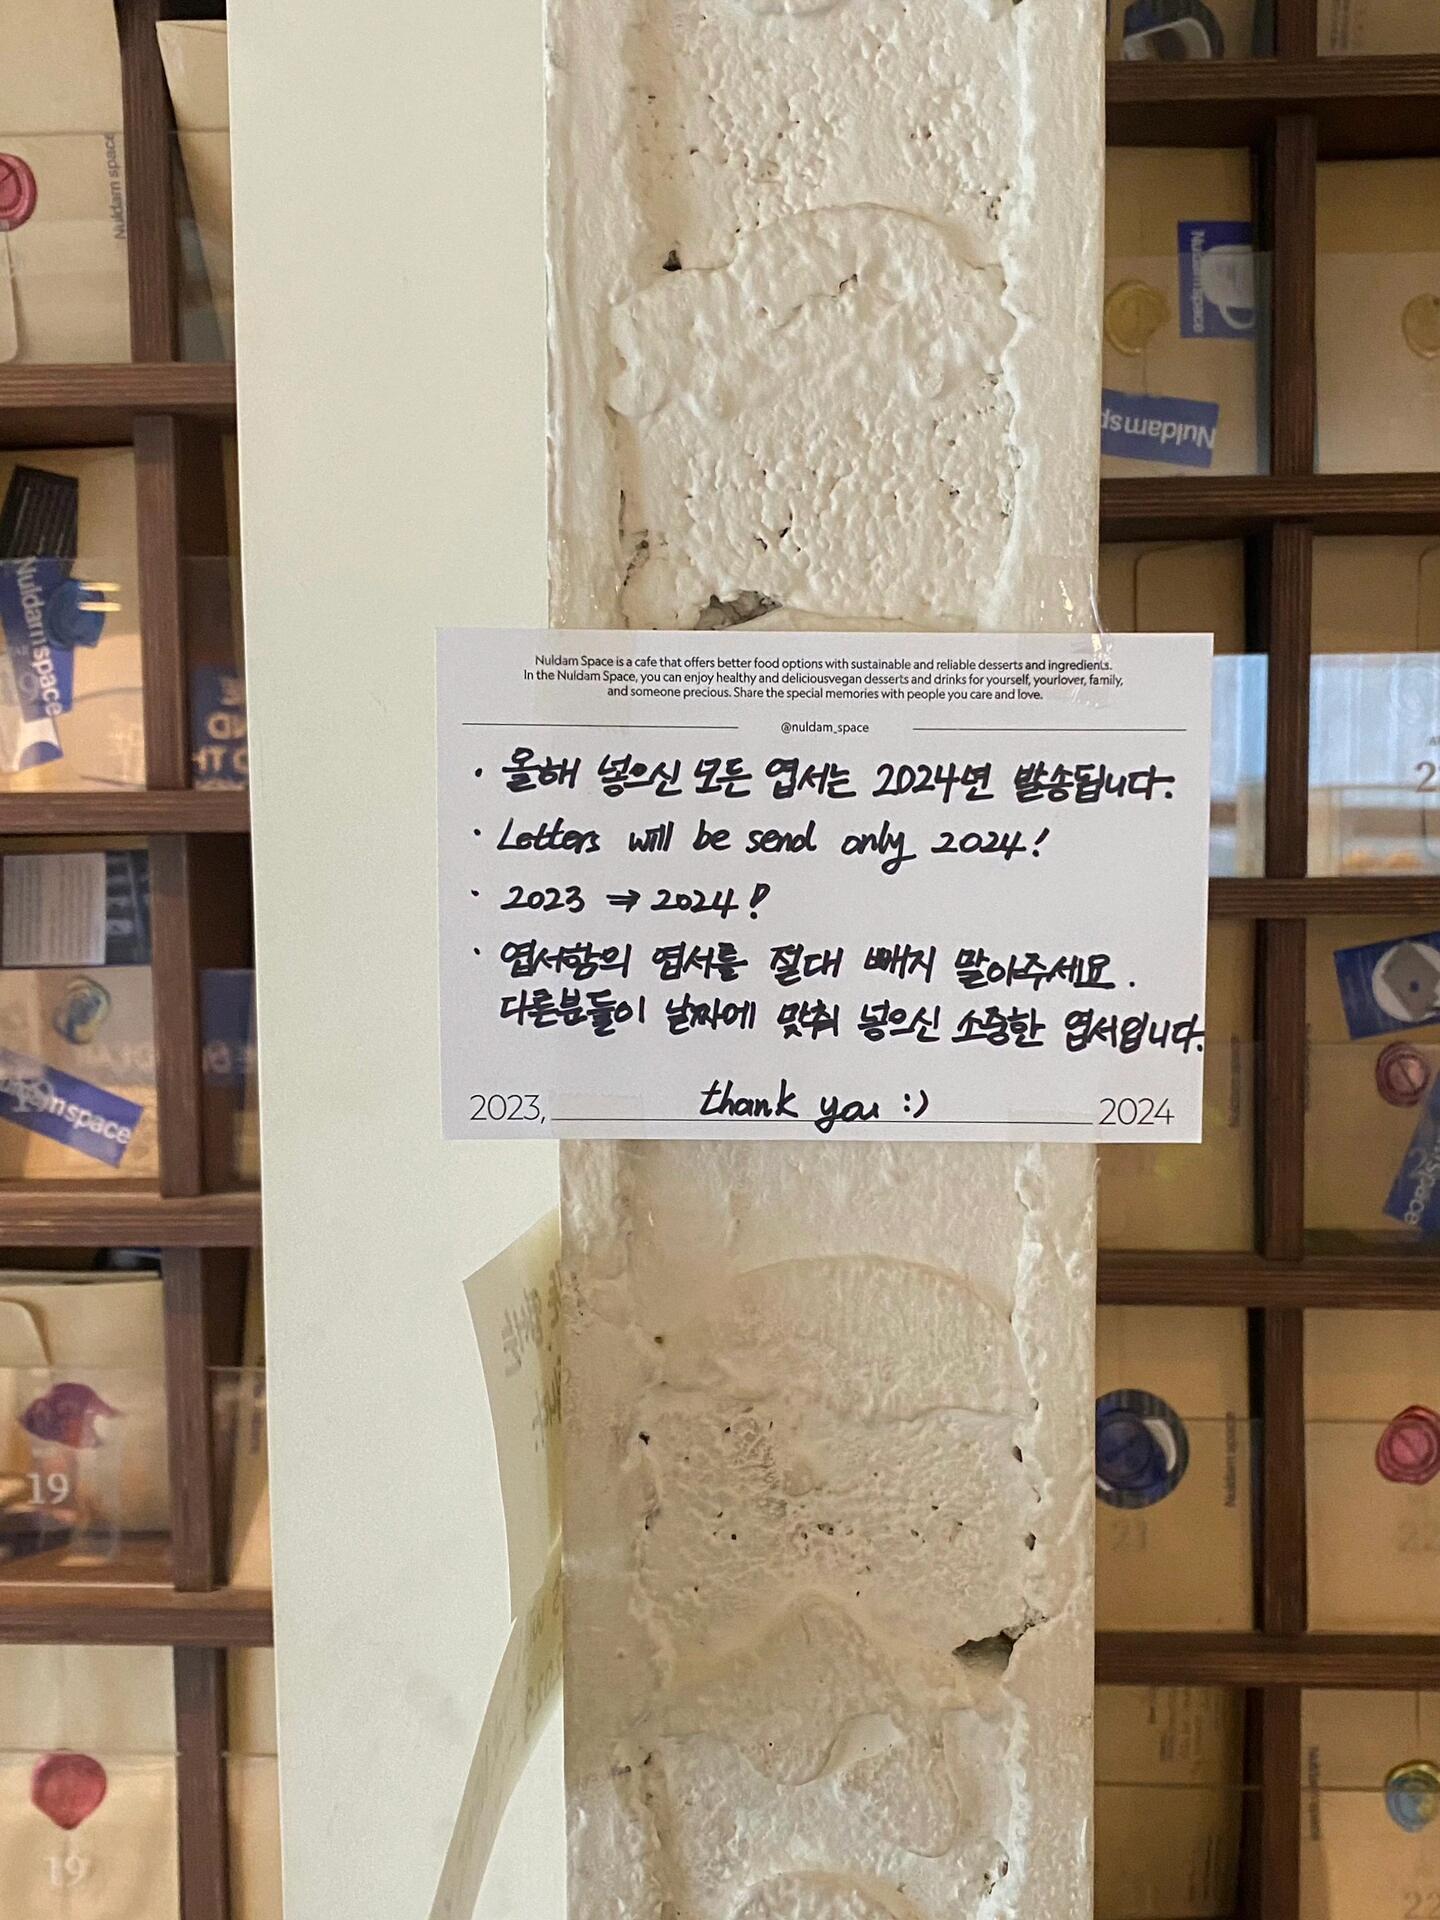 Nuldam Space is a cafe that offers better food options with sustainable and reliable desserts and ingredients.
In the Nuldam Space, you can enjoy healthy and deliciousvegan desserts and drinks for yourself, yourlover, family,
and someone precious. Share the special memories with people you care and love.
@nuldam_space
· 올해 넣으신 모든 엽서는 2024년 발송됩니다.
· Letters will be send only 2024!
· 2023 ⇒ 2024!
· 엽서함의 엽서를 절대 빼지 말아주세요.
다른분들이 날짜에 맞춰 넣으신 소중한 엽서입니다.
thank you :)
2023, 2024
Nuldam space
Nuldam space
Nuldamsp
Nuldam space
space
19
19
21
22